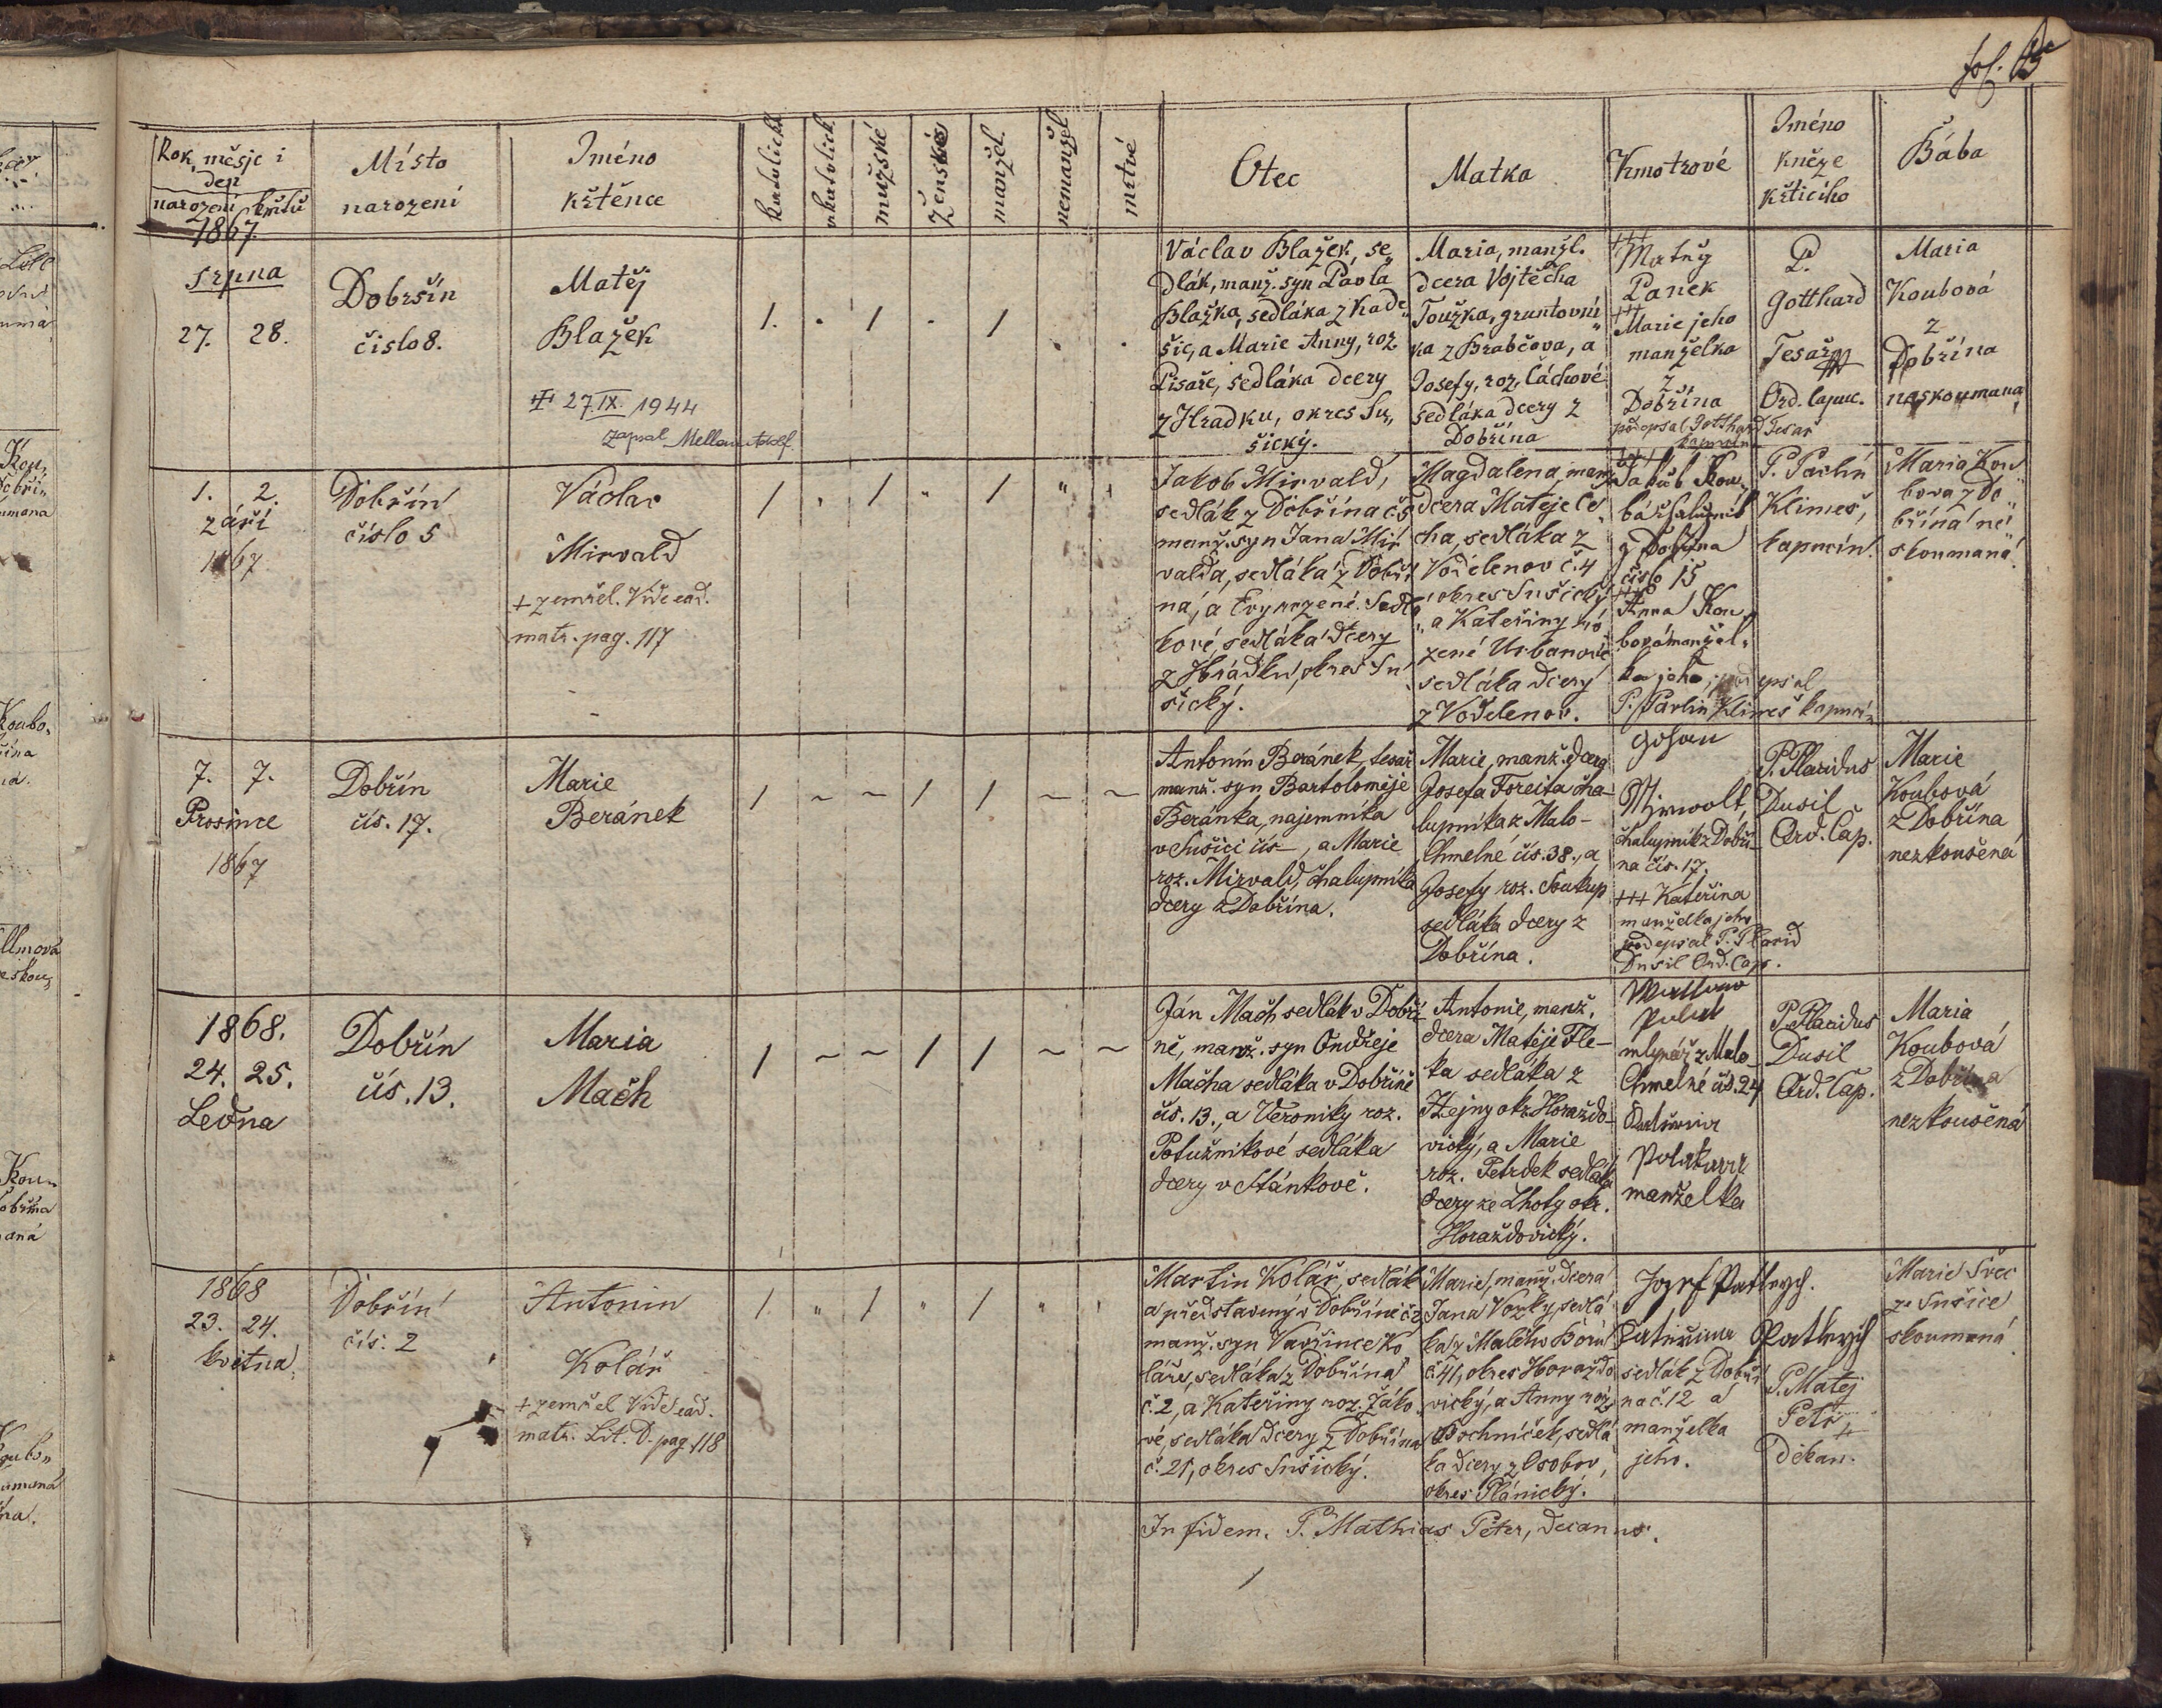 fol.
Rok, měsjc i
den
narození křtu
Místo
narození
Jméno
křtěnce
katolické
nekatolick
mužské
ženské
manžel.
nemanžel
mrtvé
Otec
Matka
Kmotrové
Jméno
kněze
křtícího
Bába
1867.
srpna
27. 28.
Dobršín
číslo 8.
Matěj
Blažek
27. IX. 1944
zapsal
1. 1 1
Václav Blažek, se„
dlák, manž. syn Pavla
Blažka, sedláka z Kade„
šic, a Marie Anny, roz.
Písaře, sedláka dcery
z Hradku, okres Su„
šický.
Maria, manžl.
dcera Vojtěcha
Toužka, gruntovní
ka z Brabčova, a
Josefy, roz. Cáchové
sedláka dcery z
Dobřína
+++
Matěg
Panek
+++
Marie jeho
manželka
z
Dobřína
podepsal Gotthard Tesař
kapucín
P.
Gotthard
Tesař
Ord. capuc.
Maria
Koubová
z
Dobřína
neskoumaná
1. 2.
září
1867
Dobřín
číslo 5
Václav
Mirvald
+ zemřel. Vide ead.
matr. pag. 117
1 1 1
Jakob Mirvald,
sedlák z Dobřína č 5
manž. syn Jana Mir
valda, sedláka z Dobří
na, a Evy rozené Sedlá
kové, sedláka dcery
z Hrádku, okres Su
šický.
Magdalena, manž.
dcera Matěje Če
cha, sedláka z
Vodělenov č. 4
okres Sušický
a Kateřiny ro
zené Urbanové
sedláka dcery
z Vodělenov.
+++
Jakub Kou„
bá chalupník
z Dobřína
číslo 15
+++
Anna Kou
bová manžel„
ka jeho, podepsal
P. Pavlin Klimeš kapucín
P. Pavlín
Klimeš,
kapucín.
Maria Kou
bova z Do
břína ne
skoumaná.
7. 7.
Prosince
1867
Dobřín
čís. 17.
Marie
Beránek
1 ~ ~ 1 1 ~ ~
Antonín Beránek, tesař
manž. syn Bartoloměje
Beránka, najemníka
v Sušici čís —, a Marie
roz. Mirvald, chalupníka
dcery z Dobřína.
Marie, manž. dcera
Josefa Foreita cha-
lupníka z Malo-
Chmelné čís. 38., a
Josefy roz. Soukup
sedláka dcery z
Dobřína.
Johan
Mirwolt,
chalupník z Dobří-
na čís. 17.
+++ Kateřina
manželka jeho
podepsal P. Placid
Dusil Ord. Cap.
P. Placidus
Dusil
Ord. Cap.
Marie
Koubová
z Dobřína
nezkoušená
1868.
24. 25.
Ledna
Dobřín
čís. 13.
Maria
Mach
1 ~ ~ 1 1 ~ ~
Ján Mach sedlák v Dobří
ně, manž. syn Ondřeje
Macha sedláka v Dobříně
čís. 13., a Veroniky roz.
Potužníkové sedláka
dcery v Stánkově.
Antonie, manž.
dcera Matěje Fle-
ka sedláka z
Hejny okr. Horažďo-
vický, a Marie
roz. Petrdek sedláka
dcery ze Lhoty okr.
Horažďovický.
mlynář z Malo-
Chmelné čís. 24
manželka
P. Placidus
Dusil
Ord. Cap.
Maria
Koubová
z Dobřína
nezkoušená
1868
23. 24.
května
Dobřín
čís. 2
Antonin
Kolář
+ zemřel Vide ead.
matr. Lit. D. pag. 118
1 „ 1 „ 1 „
Martin Kolář, sedlák
a představený v Dobříně č 2
manž. syn Vavřince Ko
láře, sedláka z Dobřína
č. 2, a Kateřiny roz. Žáko„
vé, sedláka dcery z Dobřína
č. 21, okres Sušický.
Marie, manž. dcera
Jana Vozky, sedlá
ka z Malého Boru
č. 41, okres Horažďo
vický, a Anny roz.
Bochníček, sedlá
ka dcery z Osobov,
okres Plánický.
Jozef Patleych.
Kateřina Patleych
sedlák z Dobří
na č. 12 a
manželka
jeho.
P. Matěj
Petr,
děkan.
Marie Švec
ze Sušice
skoumaná
In fidem. P. Mathias Peter, decanus.